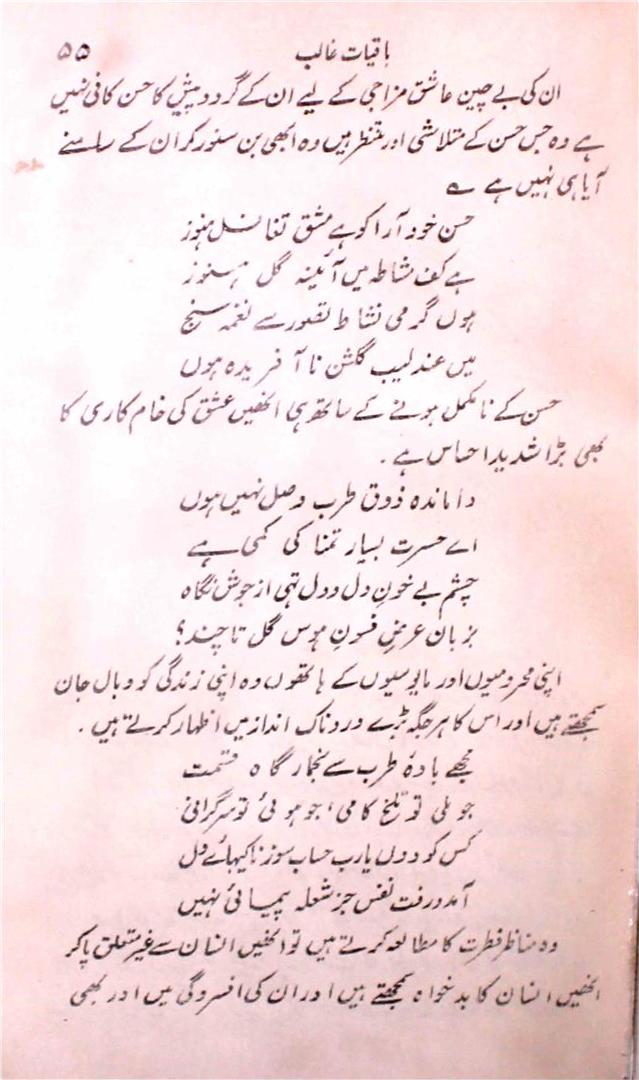 باقیات غالب ۵۵
ان کی بے چین عاشق مزاجی کے لیے ان کے گرد و پیش کا حسن کافی نہیں
ہے وہ جس حسن کے متلاشی اور منتظر ہیں وہ ابھی بن سنور کر ان کے سامنے
آیا ہی نہیں ہے ؎
حسن خود آرا کو ہے مشق تغافل ہنوز
ہے کف مشاطہ میں آئینہ گل ہنوز
ہوں گرمی نشاط تصور سے نغمہ سنج
میں عندلیب گلشن نا آفریدہ ہوں
حسن کے نامکمل ہونے کے ساتھ ہی انھیں عشق کی خام کاری کا
بھی بڑا شدید احساس ہے۔
واماندہ ذوق طرب وصل نہیں ہوں
اے حسرت بسیار تمنا کی کمی ہے
چشم بے خونِ دل و دل تہی از جوش نگاہ
بزبان عرض فسونِ ہوس گل تا چند؟
اپنی محرومیوں اور مایوسیوں کے ہاتھوں وہ اپنی زندگی کو وبال جان
سمجھتے ہیں اور اس کا ہر جگہ بڑے دردناک انداز میں اظہار کرتے ہیں۔
مجھے بادۂ طرب سے بخمار گاہ قسمت
جو ملی تو تلخ کامی، جو ہوئی تو سرگرانی
کس کو دوں یارب حساب سوزناکیہائے دل
آمد و رفت نفس جز شعلہ پیمائی نہیں
وہ مناظر فطرت کا مطالعہ کرتے ہیں تو انھیں انسان سے غیر متعلق پا کر
انھیں انسان کا بدخواہ سمجھتے ہیں اور ان کی افسردگی میں اور بھی